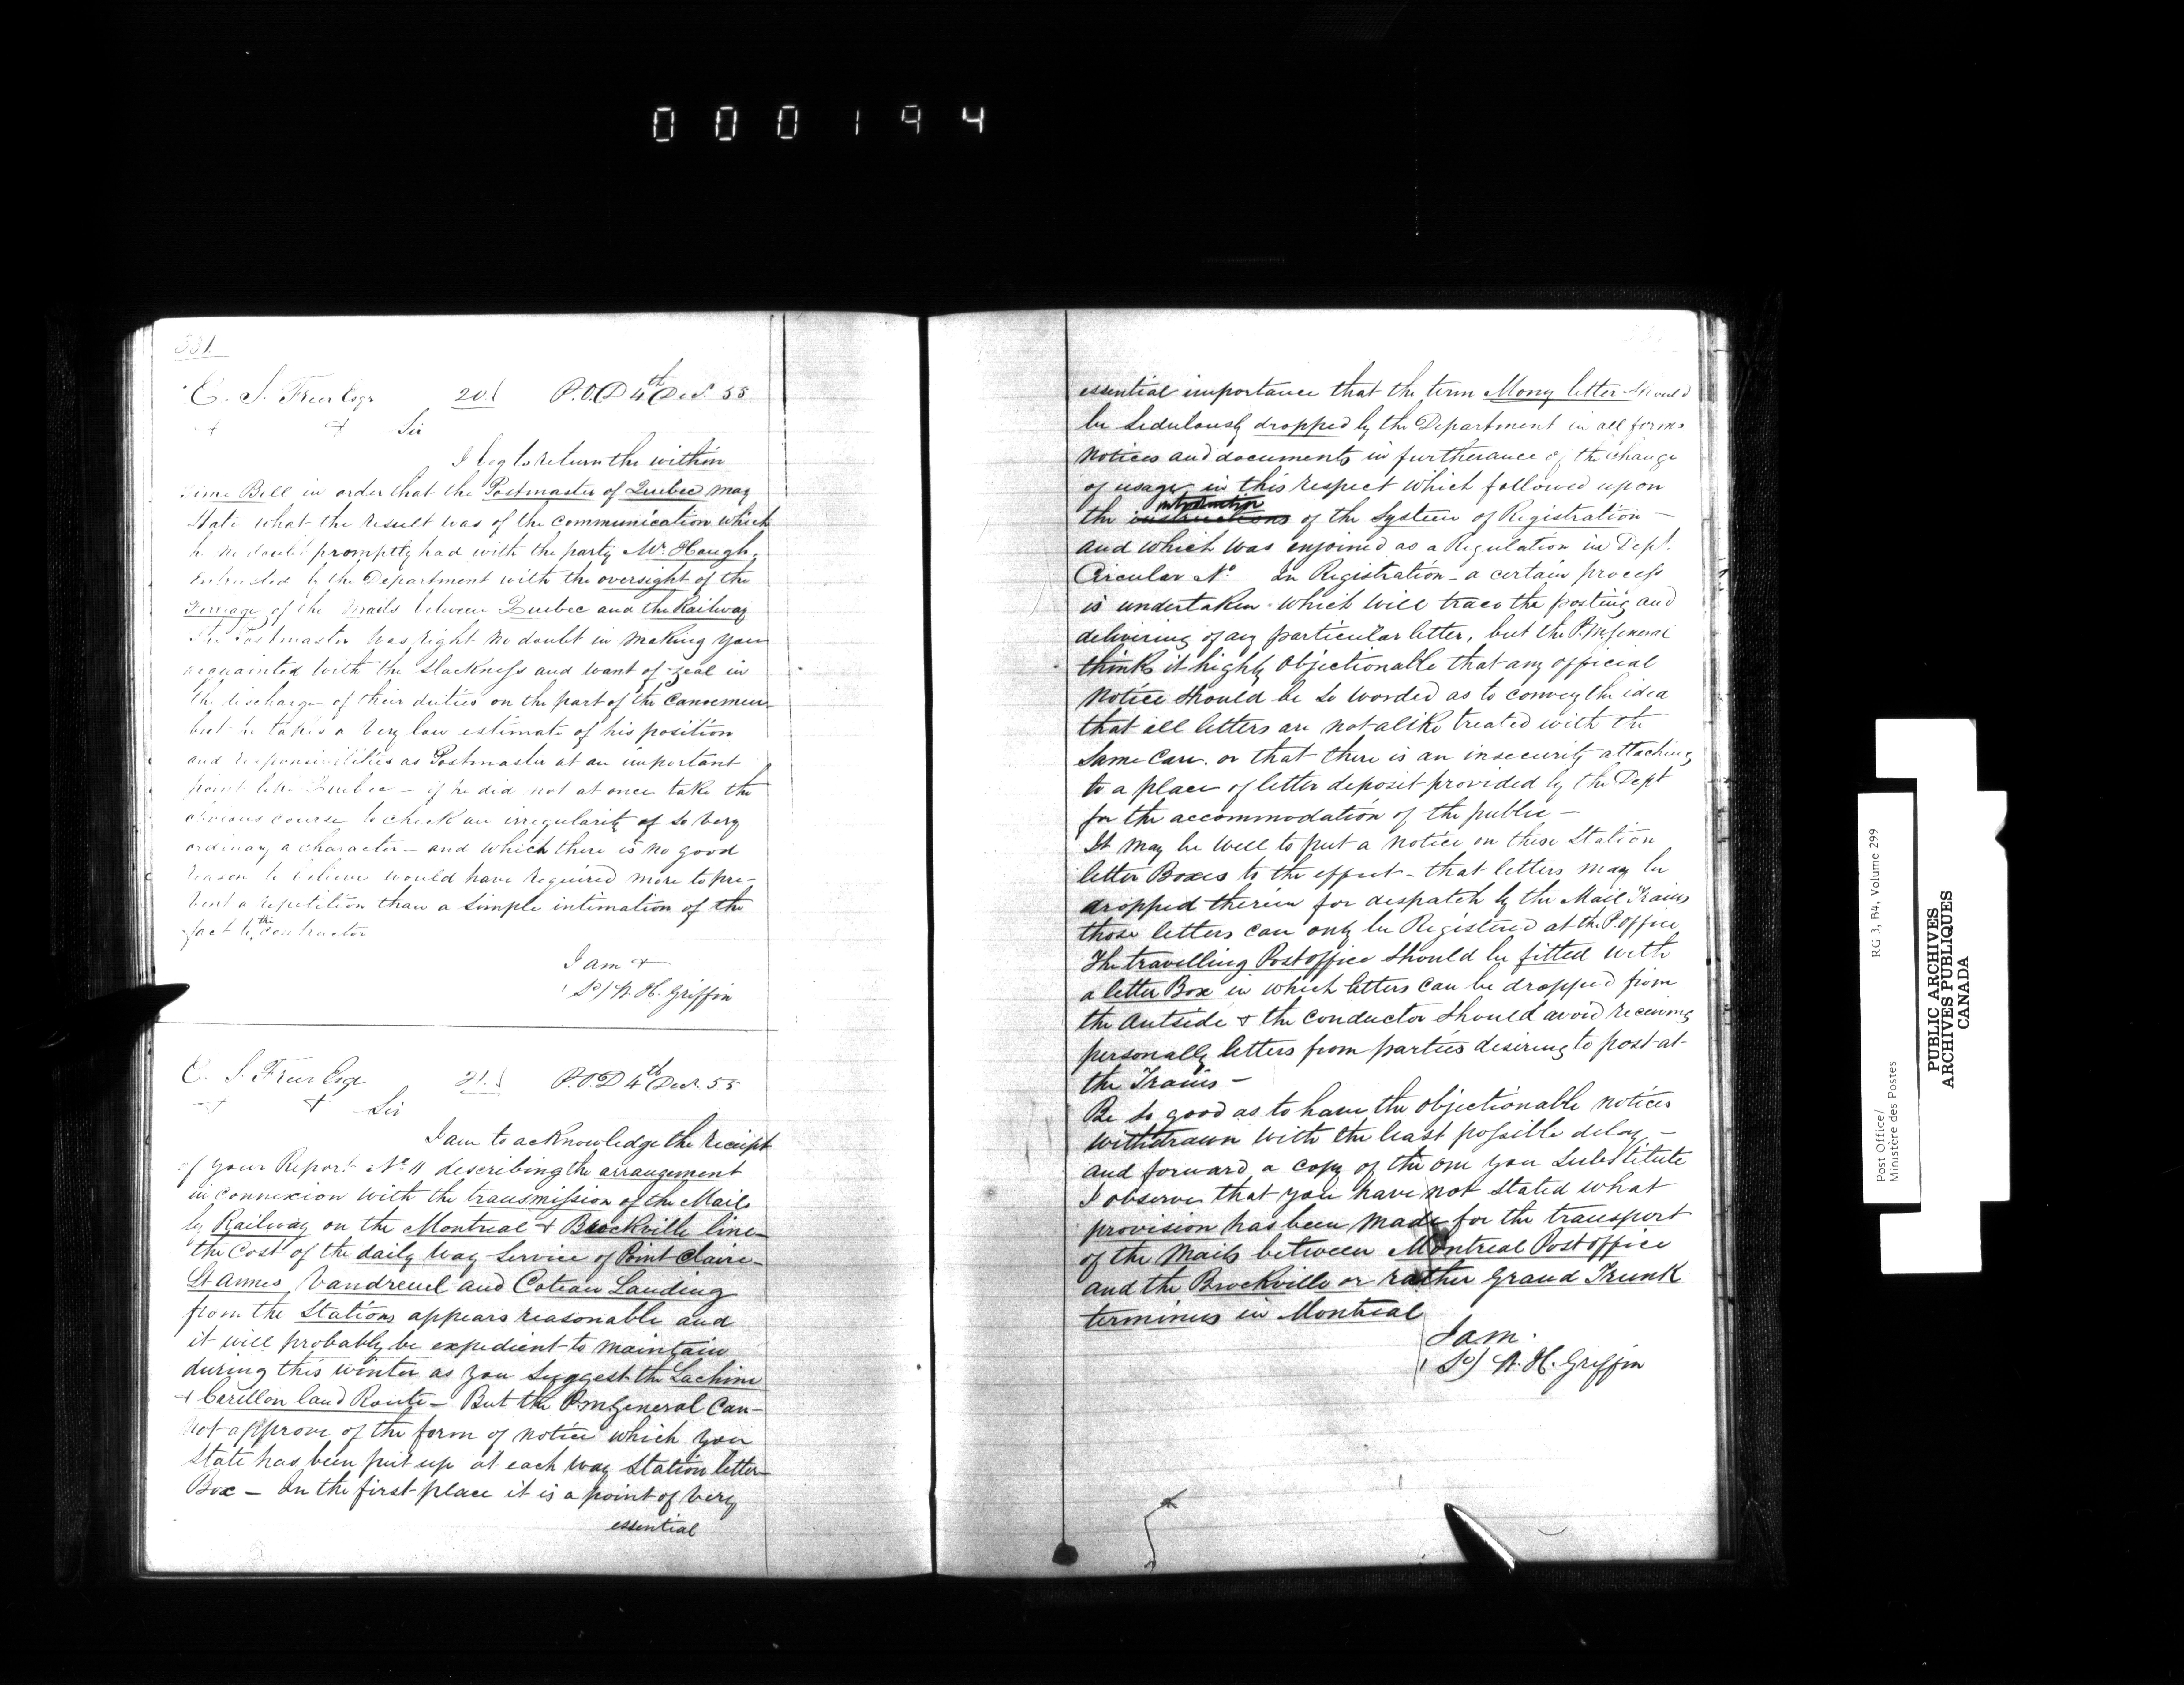 000194
331
E. S. Freer Esqr 20. P.O.D 4th Decr. 55
+ + Sir
I beg to return the within
time Bill in order that the Postmaster of Quebec may
state what the result was of the communication which
he no doubt promptly had with the party Mr. Haugh,
entrusted by the Department with the oversight of the
Ferriage of the Mails between Quebec and the Railway
The Postmaster was right no doubt in making you
acquainted with the slackness and want of zeal in
the discharge of their duties on the part of the Canoemen
but he takes a very low estimate of his position
and responsibilities as Postmaster at an important
point like Quebec - if he did not at once take the
obvious course to check an irregularity of so very
ordinary a character - and which there is no good
reason to believe would have required more to pre-
vent a repetition than a simple intimation of the
fact to the contractor
I am +
Sd/ W. H. Griffin
E. S. Freer Esqr 21. P.O.D 4th Decr. 55
+ + Sir
I am to acknowledge the receipt
of your Report No. 11 describing the arrangement
in connexion with the transmission of the Mails
by Railway on the Montreal & Brockville line -
the Cost of the daily way service of Point Claire -
St Annes, Vandreuil and Coteau Landing
from the Stations appears reasonable and
it will probably be expedient to maintain
during this winter as you suggest the Lachine
& Carillon land Route - But the P.M.General Can-
not approve of the form of notice which you
state has been put up at each way Station letter
Box - In the first place it is a point of very
essential
essential importance that the term Mony letter should
be sedulously dropped by the Department in all forms
notices and documents in furtherance of the change
of usage in this respect which followed upon
introduction
the instructions of the System of Registration -
and which was enjoined as a Regulation in Dept.
Circular No. In Registration - a certain process
is undertaken which will trace the posting and
delivering of any particular letter, but the P.M.General
thinks it highly objectionable that any official
notice should be so worded as to convey the idea
that all letters are not alike treated with the
same care. or that there is an insecurity attaching
to a place of letter deposit provided by the Dept
for the accommodation of the public -
It may be well to put a notice on these Station
letter Boxes to the effect - that letters may be
dropped therein for dispatch by the Mail Trains
those letters can only be Registered at the P.Office
The travelling Postoffice should be fitted with
a letter Box in which letters can be dropped from
the Outside & the conductor should avoid receiving
personally letters from parties desiring to post at
the Trains -
Be so good as to have the objectionable notices
withdrawn with the least possible delay -
and forward a copy of the one you substitute
I observe that you have not stated what
provision has been made for the transport
of the Mails between Montreal Postoffice
and the Brockville or rather Grand Trunk
terminus in Montreal
I am.
Sd/ W. H. Griffin
Post Office/
Ministère des Postes
RG 3, B4, Volume 299
PUBLIC ARCHIVES
ARCHIVES PUBLIQUES
CANADA